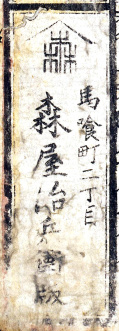 馬喰町二丁目
森屋治兵衛板